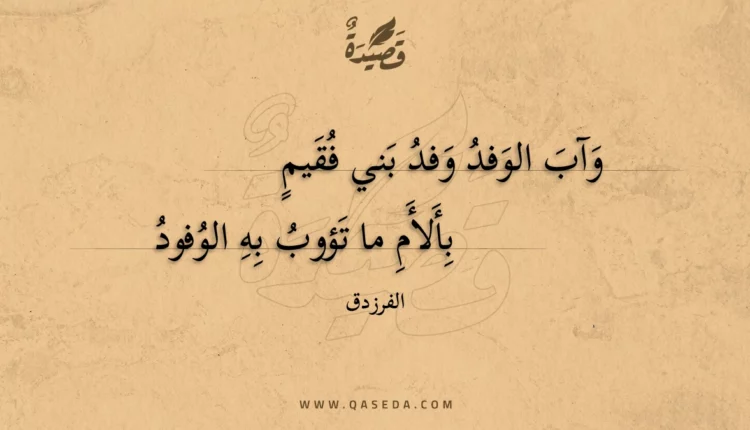 قَصِيْدَةٌ
وَآبَ الوَفدُ وَفدُ بَني فُقَيمٍ
بِأَلأَمِ ما تَؤوبُ بِهِ الوُفودُ
الفرزدق
WWW.QASEDA.COM